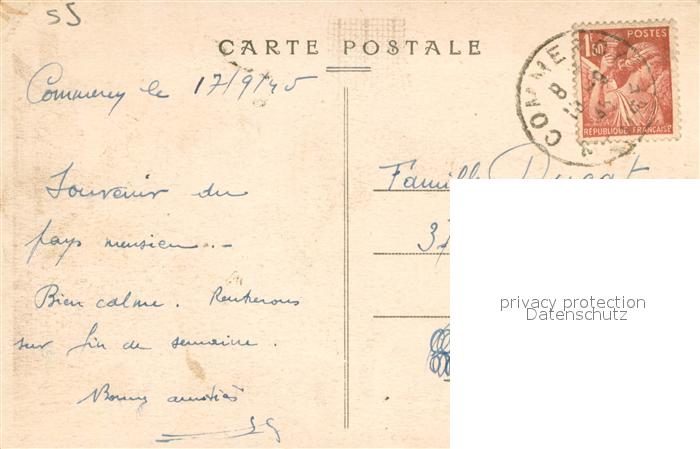 55
CARTE POSTALE
Commercy le 17/9/45
Souvenir du
pays meusien.-
Bien calme. Rentrerons
sur fin de semaine.
Bonnes amitiés
POSTES
1F50
RÉPUBLIQUE FRANÇAISE
COMME
8
18-9
45
Famille
privacy protection
Datenschutz